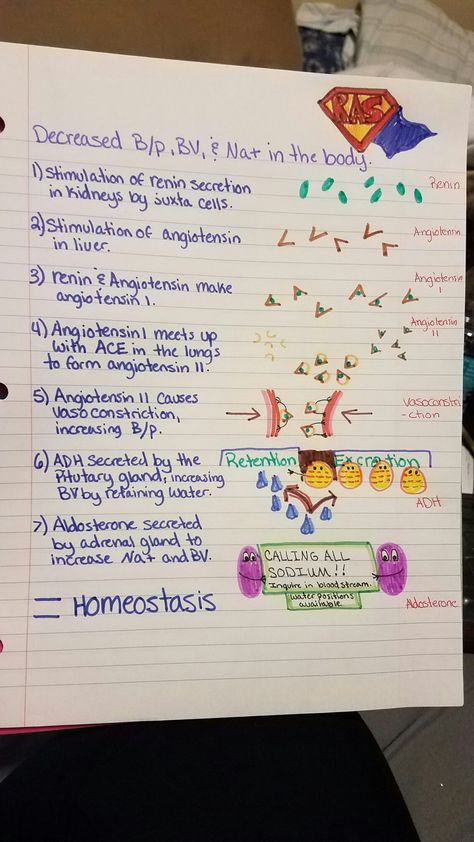 RAS
Decreased B/p, BV, & Na+ in the body.
1) Stimulation of renin secretion
in kidneys by juxta cells.
Renin
2) Stimulation of angiotensin
in liver.
Angiotenin
3) renin & Angiotensin make
angiotensin 1.
Angiotensin
I
4) Angiotensin 1 meets up
with ACE in the lungs
to form angiotensin 11.
Angiotensin
II
5) Angiotensin 11 causes
vasoconstriction,
increasing B/p.
Vasoconstri
-ction
6) ADH secreted by the
Pitutary gland, increasing
BV by retaining water.
Retention
Excretion
ADH
7) Aldosterone secreted
by adrenal gland to
increase Na+ and BV.
CALLING ALL
SODIUM!!
Inquire in blood stream.
water positions
available
Aldosterone
= Homeostasis